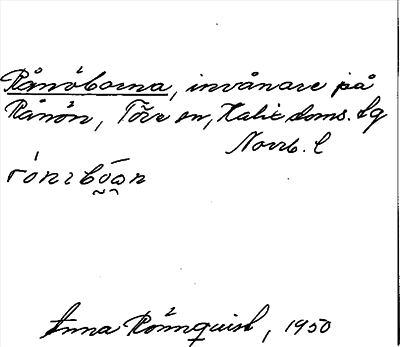 Rånöborna, invånare på
Rånön, Töre sn, Kalix doms. lg
Norrb. l
rónɩbóan
Anna Rönnquist, 1950